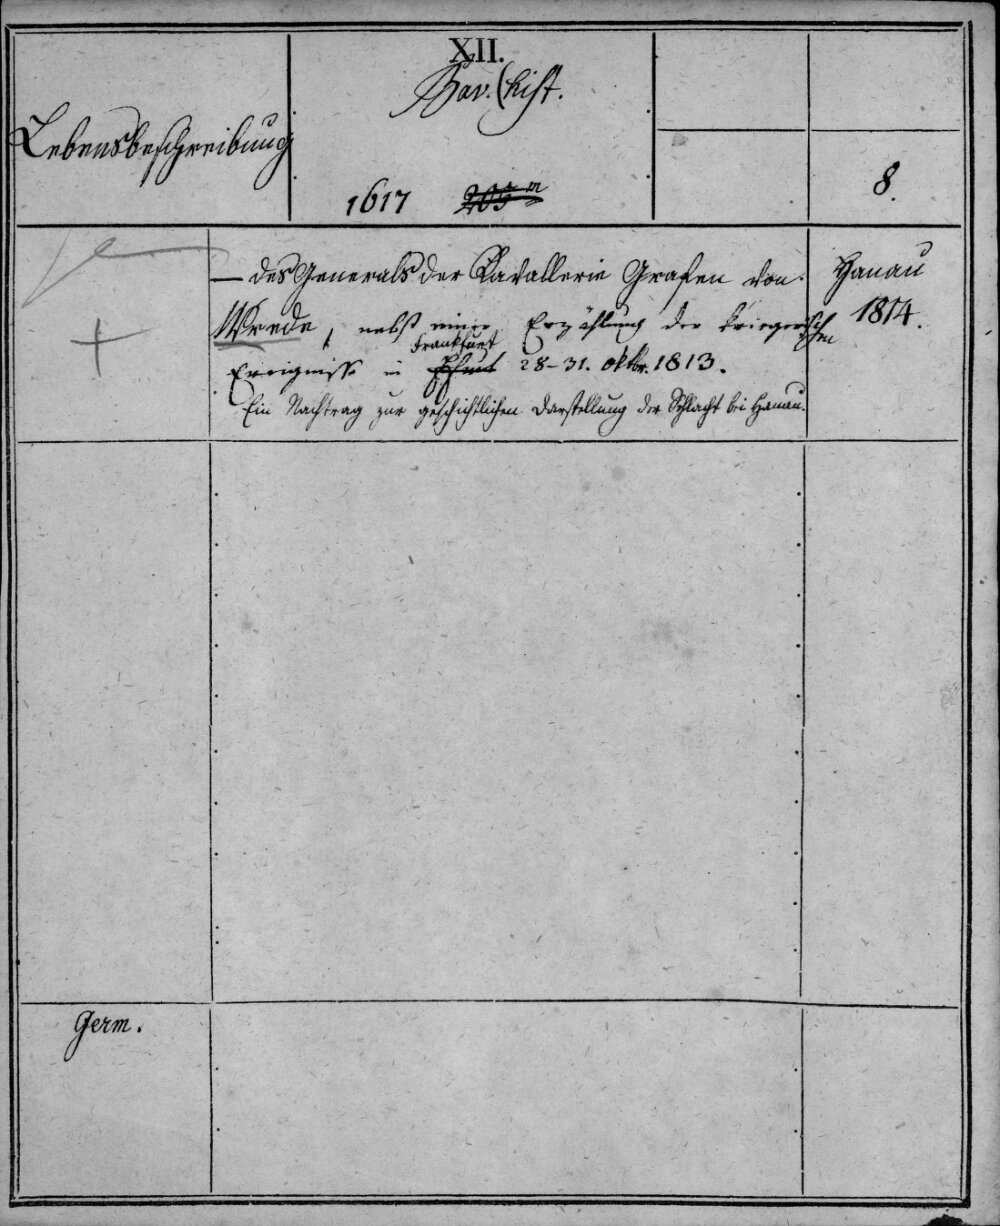 XII.
Bav. Hist.
Lebensbeschreibung
1617
8.
— des Generals der Kavallerie Grafen von
Wrede, nebst einer Erzählung der kriegerischen
Frankfurt
Ereignisse in 28-31. Oktbr. 1813.
Ein Nachtrag zur geschichtlichen Darstellung der Schlacht bei Hanau.
Hanau
1814.
Germ.